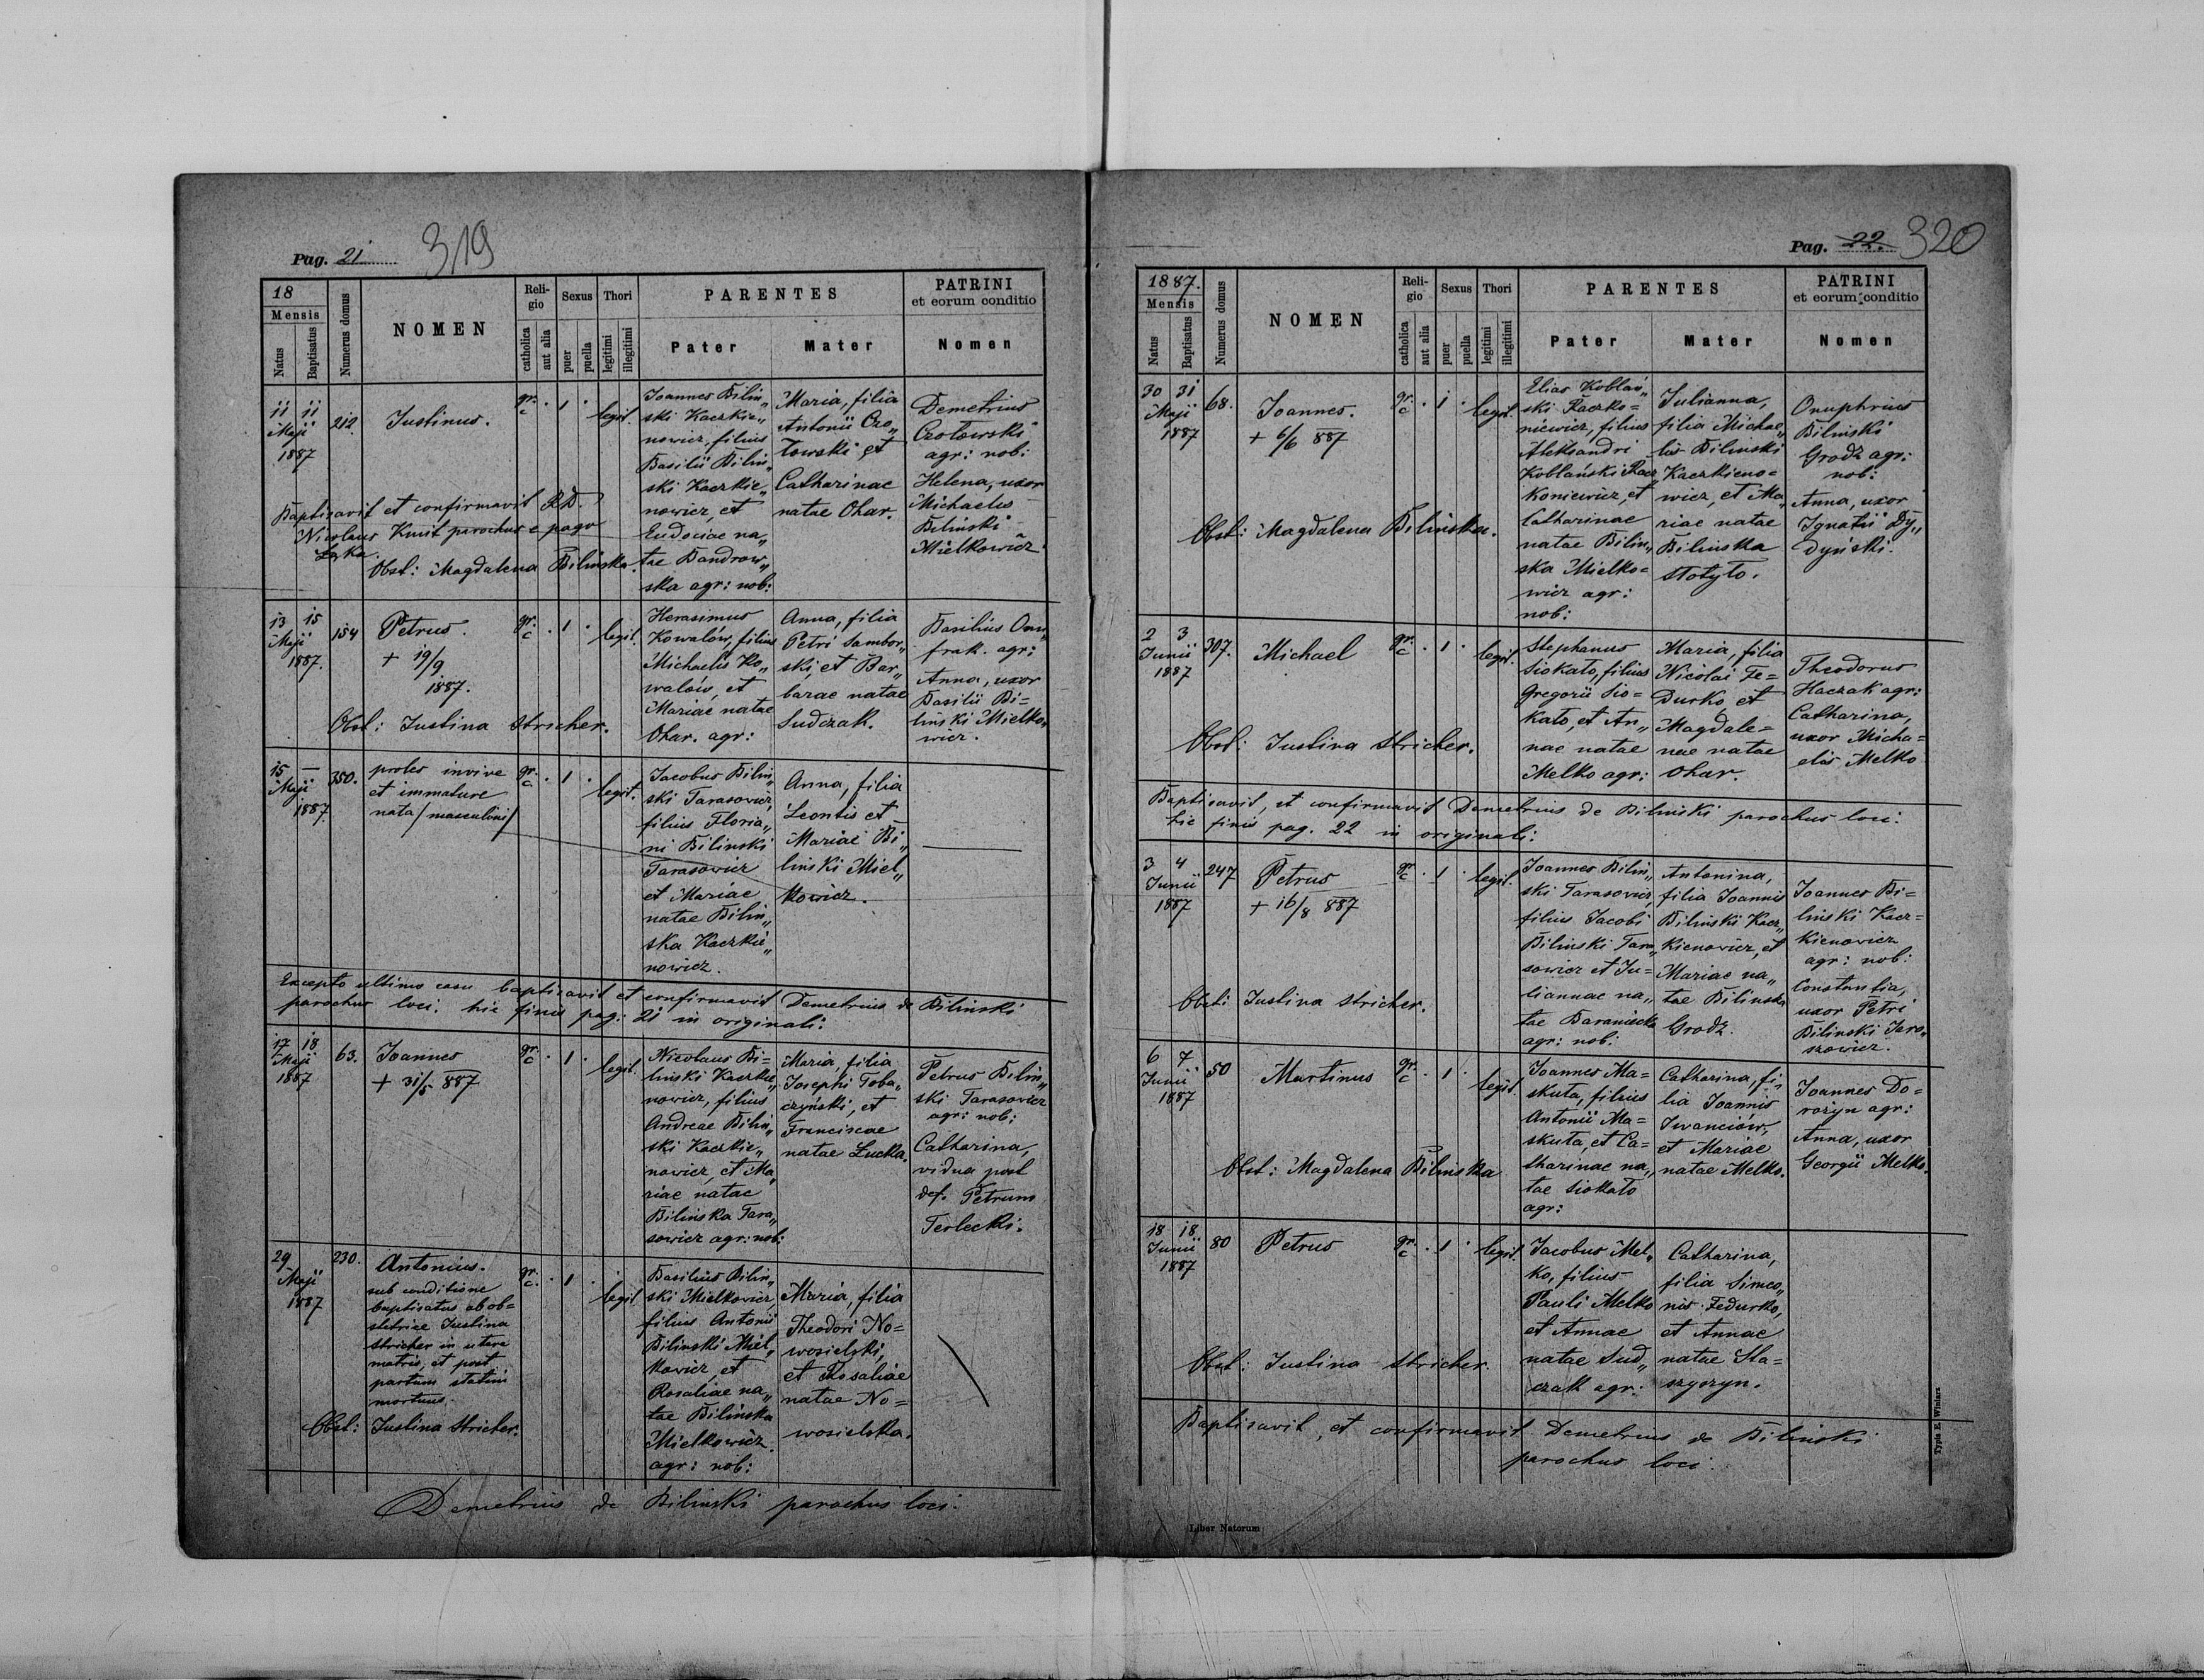 Pag. 21
319
18
Mensis
Natus
Baptisatus
Numerus domus
NOMEN
Reli-
gio
catholica
aut alia
Sexus
puer
puella
Thori
legitimi
illegitimi
PARENTES
Pater
Mater
PATRINI
et eorum conditio
Nomen
11 11
Maji
1887
212.
Justinus.
gr.
c
. 1 .
legit.
Joannes Bilin„
ski Kaczkie„
nowicz, filius
Basilii Bilin„
ski Kaczkie„
nowicz, et
Eudociae na„
tae Bandrow„
ska agr: nob:
Maria, filia
Antonii Czo„
łowski et
Catharinae
natae Ohar.
Demetrius
Czołowski
agr: nob:
Helena, uxor
Michaelis
Bilinski
Mielkowicz
Baptisavit et confirmavit R.D.
Nicolaus Kmit parochus e pago
Łąka.
Obst: Magdalena Bilinska.
13 15
Maji
1887.
154
Petrus.
+ 19/9
1887.
gr.
c
. 1 .
legit.
Herasimus
Kowalów, filius
Michaelis Ko„
walów, et
Mariae natae
Ohar. agr:
Anna, filia
Petri Sambor„
ski, et Bar„
barae natae
Sudczak.
Basilius Onu„
frak. agr:
Anna, uxor
Basilii Bi=
linski Mielko„
wicz.
Obst: Justina Stricher.
15 —
Maji
1887.
350.
proles invive
et immature
nata /masculini/
gr.
c
. 1 .
legit.
Jacobus Bilin„
ski Tarasowicz,
filius Floria„
ni Bilinski
Tarasowicz
et Mariae
natae Bilin„
ska Kaczkie„
nowicz.
Anna, filia
Leontis et
Mariae Bi„
linski Miel„
kowicz.
Excepto ultimo casu baptisavit et confirmavit Demetrius de Bilinski
parochus loci. hic finis pag: 21 in originali:
17 18
Maji
1887
63.
Joannes
+ 31/5 887
gr.
c
. 1 .
legit.
Nicolaus Bi=
linski Kaczkie„
nowicz, filius
Andreae Bilin„
ski Kaczkie„
nowicz, et Ma„
riae natae
Bilinska Tara„
sowicz agr: nob:
Maria, filia
Josephi Toba„
czyński, et
Franciscae
natae Łucka.
Petrus Bilin„
ski Tarasowicz
agr: nob:
Catharina,
vidua post
def. Petrum
Terlecki.
29
Maji
1887
230.
Antonius.
sub conditione
baptisatus ab ob=
stetrice Justina
Stricher in utero
matris, et post
partum statim
mortuus.
gr.
c.
. 1 .
legit
Basilius Bilin„
ski Mielkowicz,
filius Antonii
Bilinski Miel„
kowicz, et
Rosaliae na„
tae Bilinska
Mielkowicz.
agr: nob:
Maria, filia
Theodori No=
wosielski,
et Rosaliae
natae No=
wosielska.
Obst: Justina Stricher.
Demetrius de Bilinski parochus loci.
Pag. 22.
320
1887.
Mensis
Natus
Baptisatus
Numerus domus
NOMEN
Reli-
gio
catholica
aut alia
Sexus
puer
puella
Thori
legitimi
illegitimi
PARENTES
Pater
Mater
PATRINI
et eorum conditio
Nomen
30 31
Maji
1887
68.
Joannes.
+ 6/6 887
gr.
c
. 1 .
legit.
Elias Koblań„
ski Raczko=
niewicz, filius
Aleksandri
Koblański Racz„
koniewicz, et
Catharinae
natae Bilin„
ska Mielko=
wicz agr:
nob:
Julianna,
filia Michae„
lis Bilinski
Kaczkieno=
wicz, et Ma„
riae natae
Bilinska
Stotyło.
Onuphrius
Bilinski
Grodz agr:
nob:
Anna, uxor
Ignatii Dy„
dyński.
Obst: Magdalena Bilinska.
2 3
Junii
1887
307.
Michael
gr.
c
. 1 .
legit.
Stephanus
Siokało, filius
Gregorii Sio=
kało, et An„
nae natae
Melko agr:
Maria, filia
Nicolai Fe=
durko, et
Magdale=
nae natae
Ohar.
Theodorus
Haczak agr:
Catharina,
uxor Micha=
elis Melko
Obst: Justina Stricher.
Baptisavit, et confirmavit Demetrius de Bilinski parochus loci:
hic finis pag. 22 in originali:
3 4
Junii
1887
247
Petrus
+ 16/8 887
gr.
c
. 1 .
legit.
Joannes Bilin„
ski Tarasowicz,
filius Jacobi
Bilinski Tara„
sowicz et Ju=
liannae na„
tae Baraniecka
agr: nob:
Antonina,
filia Joannis
Bilinski Kacz„
kienowicz, et
Mariae na„
tae Bilinska
Grodz.
Joannes Bi=
linski Kacz=
kienowicz
agr: nob:
Constantia,
uxor Petri
Bilinski Jaro„
szowicz.
Obst: Justina Stricher.
6 7
Junii
1887
50
Martinus
gr.
c
. 1 .
legit.
Joannes Ma=
skuta, filius
Antonii Ma=
skuta, et Ca=
tharinae na„
tae Siokało
agr:
Catharina, fi„
lia Joannis
Iwanciów,
et Mariae
natae Melko.
Joannes Do=
rożyn agr:
Anna, uxor
Georgii Melko.
Obst: Magdalena Bilinska
18 18
Junii
1887
80
Petrus
gr.
c
. 1 .
legit.
Jacobus Mel„
ko, filius
Pauli Melko
et Annae
natae Sud„
czak agr:
Catharina,
filia Simeo„
nis Fedurko,
et Annae
natae Sta=
szyszyn.
Obst: Justina Stricher.
Baptisavit, et confirmavit Demetrius de Bilinski
parochus loci.
Liber Natorum
Typis E. Winiarz